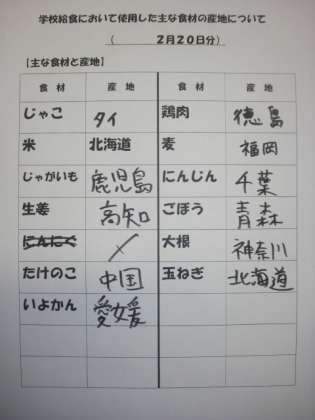 学校給食において使用した主な食材の産地について
（ 2月20日分）
【主な食材と産地】
食材 産地 食材 産地
じゃこ タイ 鶏肉 徳島
米 北海道 麦 福岡
じゃがいも 鹿児島 にんじん 千葉
生姜 高知 ごぼう 青森
にんにく ／ 大根 神奈川
たけのこ 中国 玉ねぎ 北海道
いよかん 愛媛